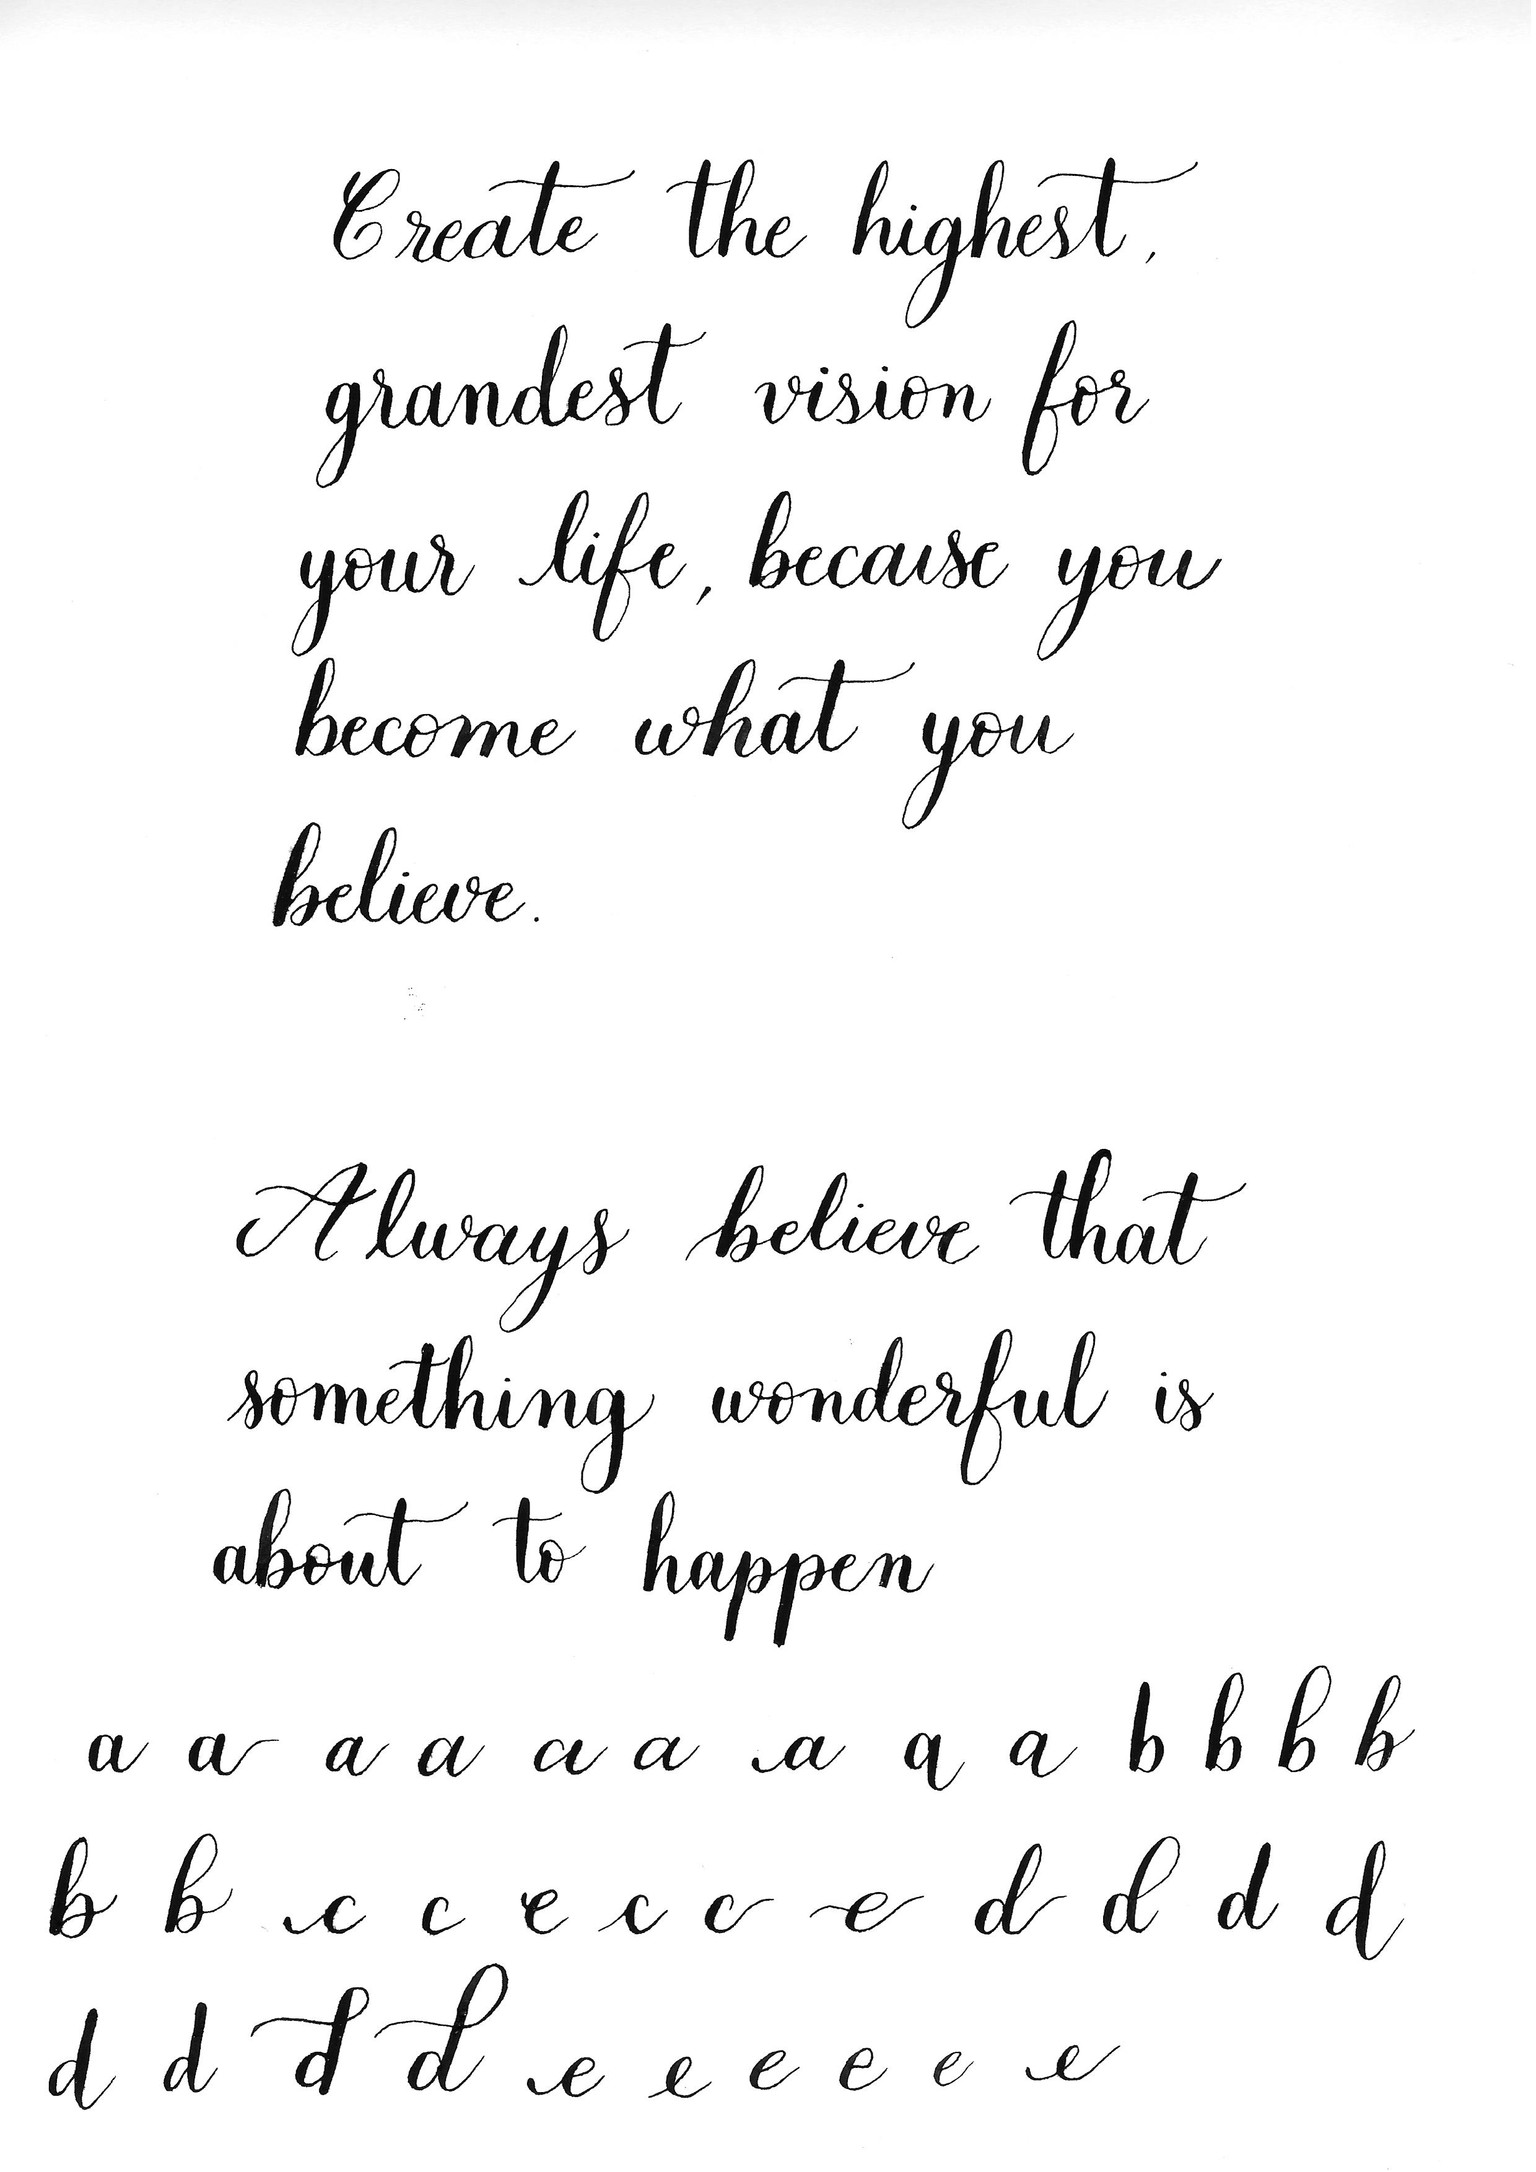 Create the highest,
grandest vision for
your life, because you
become what you
believe.
Always believe that
something wonderful is
about to happen
a a a a a a a a a b b b b
b b c c c c c c d d d d
d d d d e e e e e e